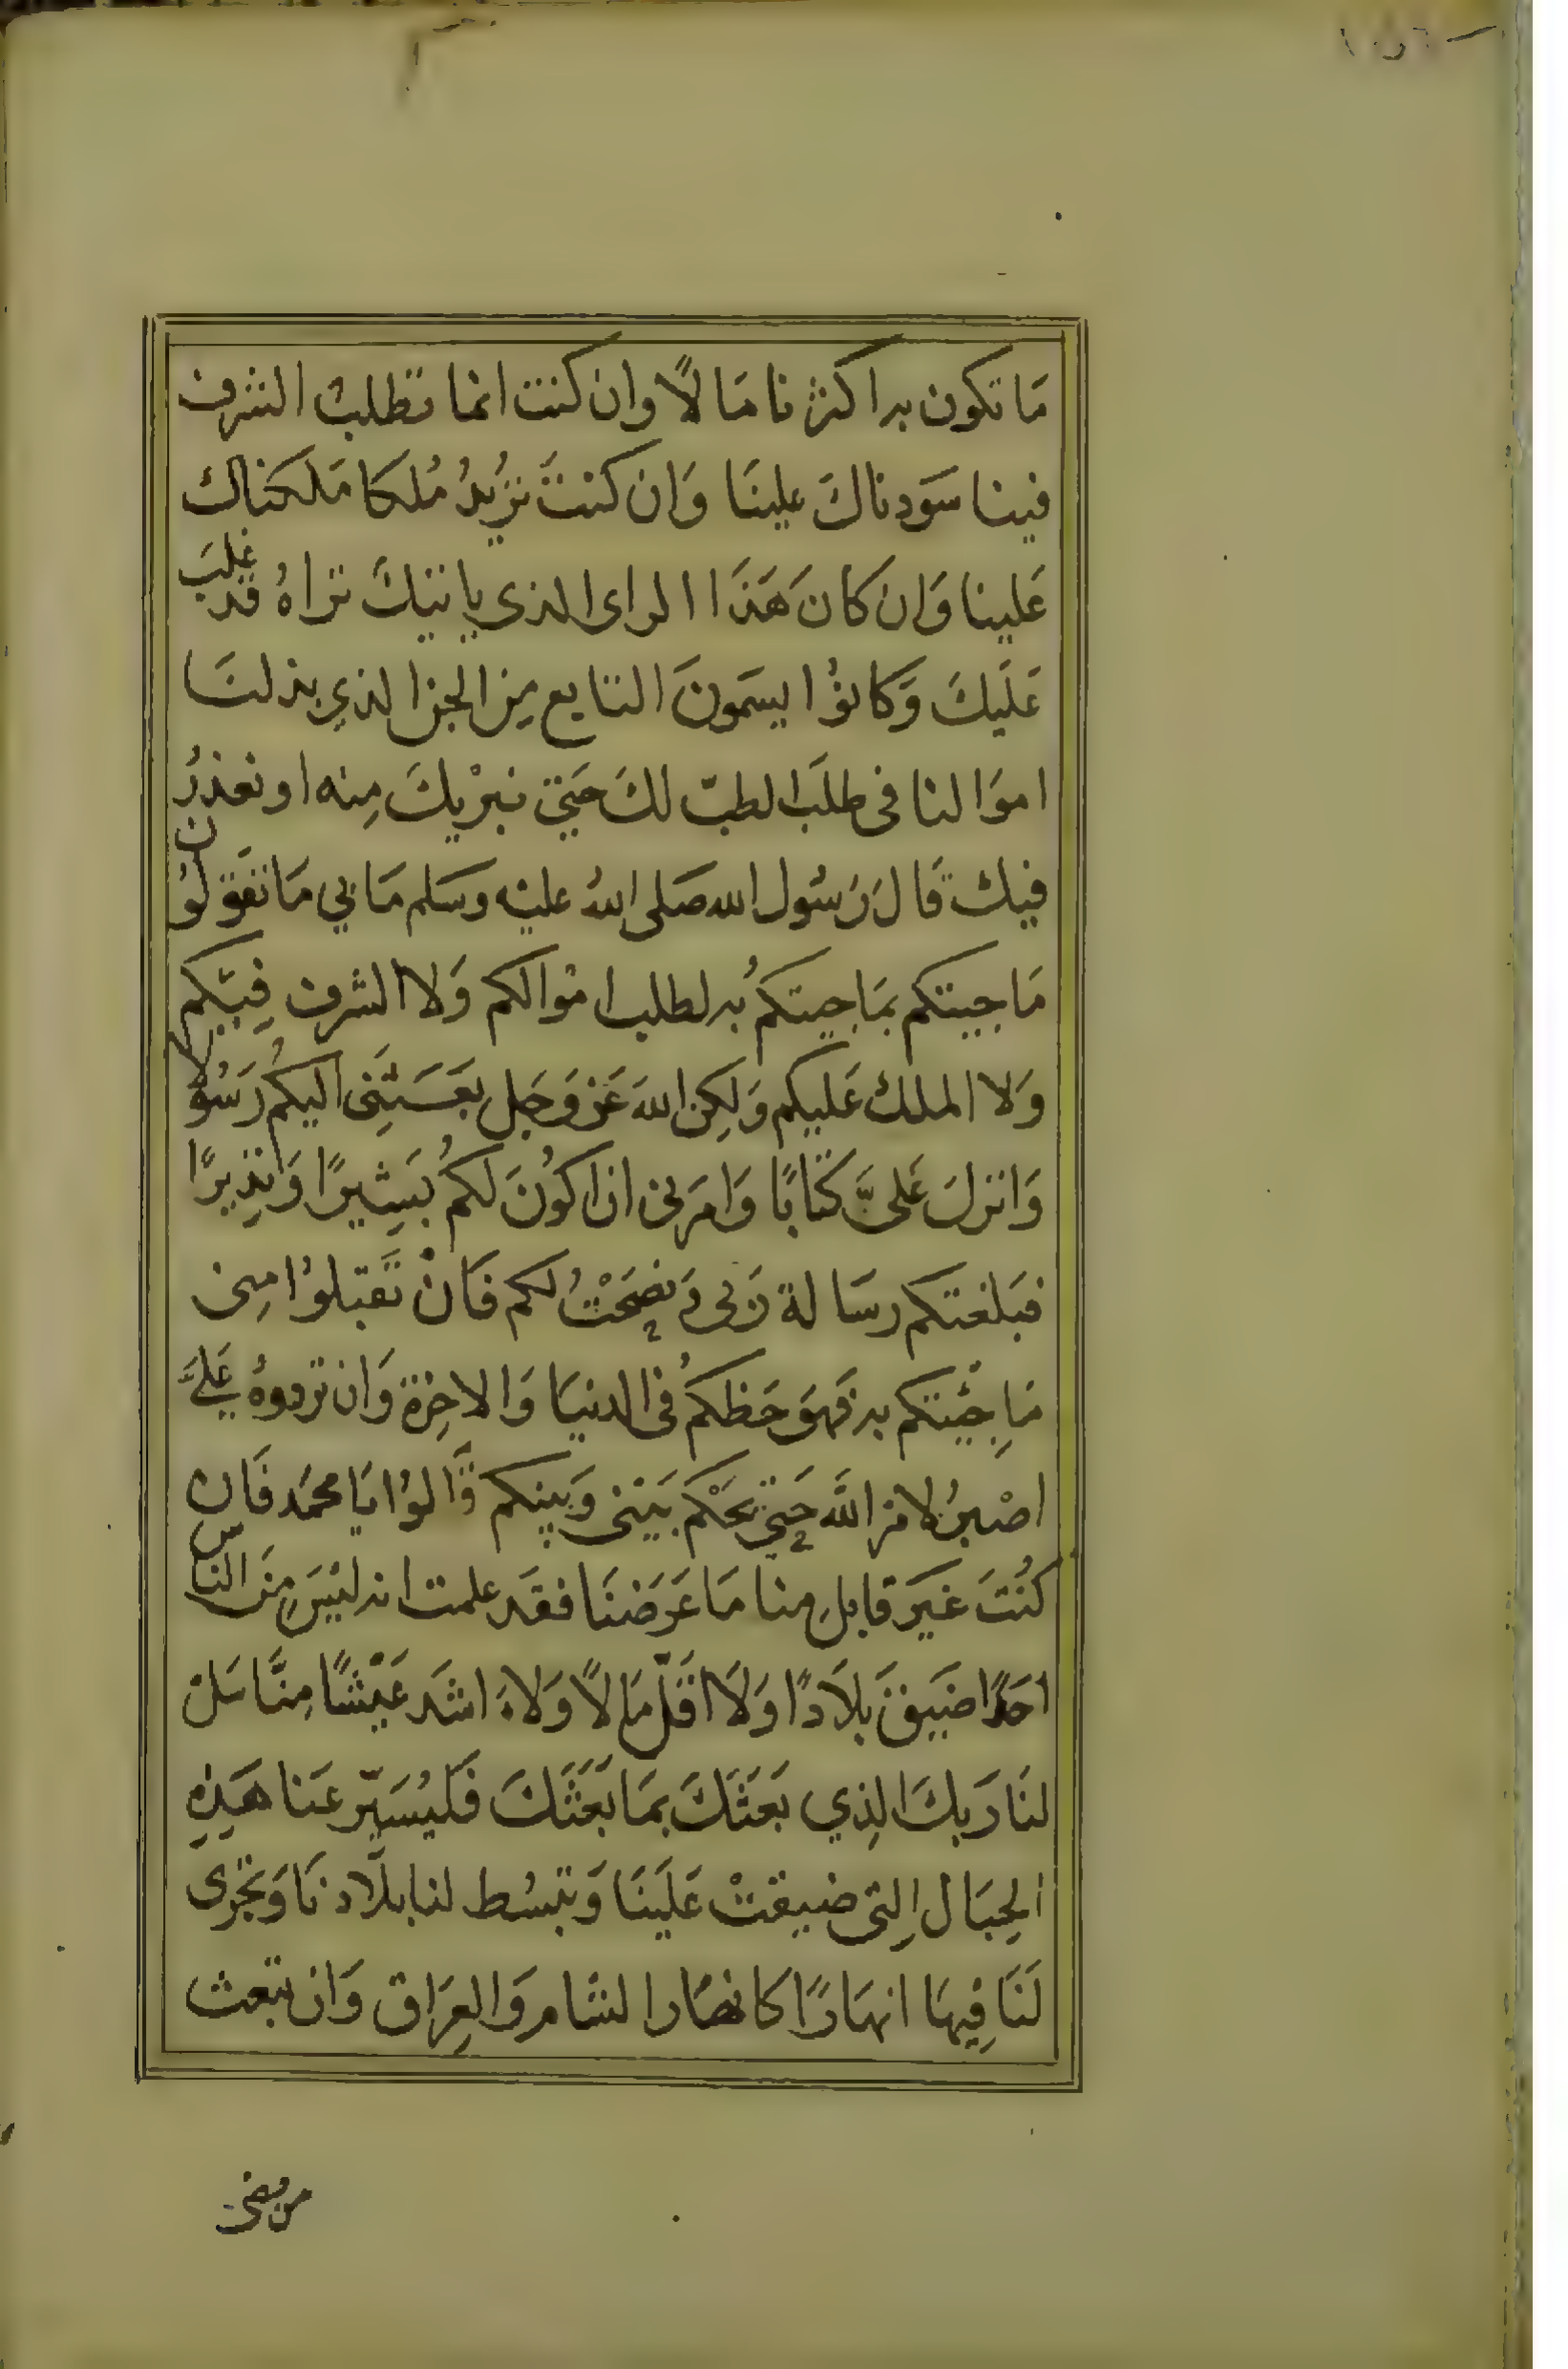 مَا تكون به اكثرنا مَالًا وان كنت انما تطلب الشرف
فينا سَودناكَ علينَا وَان كنتَ تزيدُ مُلكا مَلكناك
عَلينا وَان كانَ هَذَا الراى الذى ياتيكَ تراهُ قد غلبَ
عَلَيكَ وَكانوُا يسَمونَ التابع مِن الجن الذي بذلنَا
اموَالنا فى طلَب الطبّ لكَ حَتي نبرْيكَ مِنه او نعذرُ
فيك قَالَ رَسُول الله صَلى اللهُ عليْه وسَلم مَا بي مَا تقَولُون
مَا جيتكم بمَا جيتكمُ به لطلب امْوالكم وَلا الشرف فِيْكم
وَلا الملك عَليكم وَلكِن اللهَ عَز وَجَل بعَثَنِى اليكُم رَسُولا
وَانزلَ عَلىَّ كتابًا وَامَرنى ان اكوُنَ لكمُ بَشِيرًا وَنذِيرًا
فبَلغتكم رسَالة رَبى وَنصَحْتُ لكم فَانْ تَقبلوُا مِنى
مَا جِئْيتكم به فَهوَ حَظكمُ فى الدنيَا وَالاخِرة وَان تردوهُ عَليَّ
اصْبرُ لامر اللَّه حَتي يحَكْم بَيْنى وَبينكم قَالوُا يَا محمَد فَان
كنُتَ غيَرَ قابلِ منا مَا عَرَضنَا فقَد علمت انه ليْسَ مِنَ الناس
احَدًا ضيَق بلَادًا وَلَا اقَلّ مَالًا وَلاَ اشَد عَيْشًا مِنَّا سَل
لنَا رَبكَ الذِي بَعَثَكَ بمَا بَعَثَكَ فَليُسَيّر عَنا هَذِهِ
الجِبَال التِى ضيقتْ عَلَينَا وَيبسُط لنا بلَادنَا وَيجْرى
لَنَا فِيهَا انهَارًا كانهَار الشام وَالعِرَاق وَان يبعث